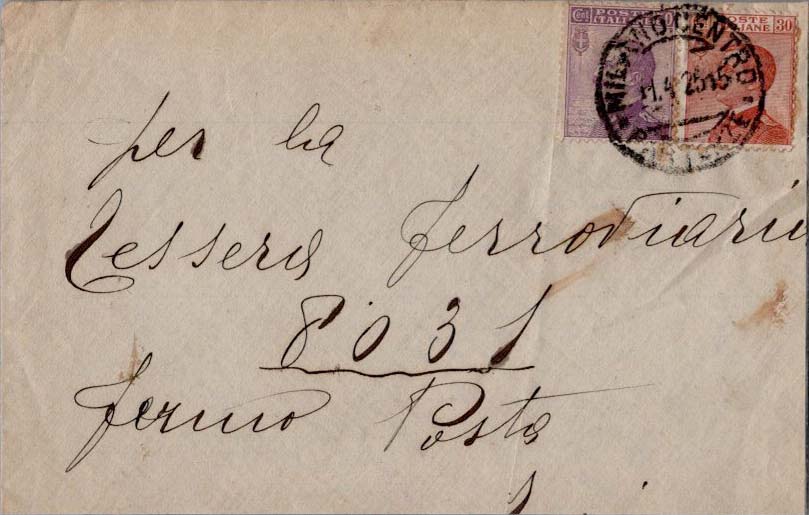 Cent POSTE 30
ITALIANE
POSTE
ITALIANE 30
MILANO CENTRO
11.4.25.15
per la
Tessera ferroviaria
8031
fermo Posta